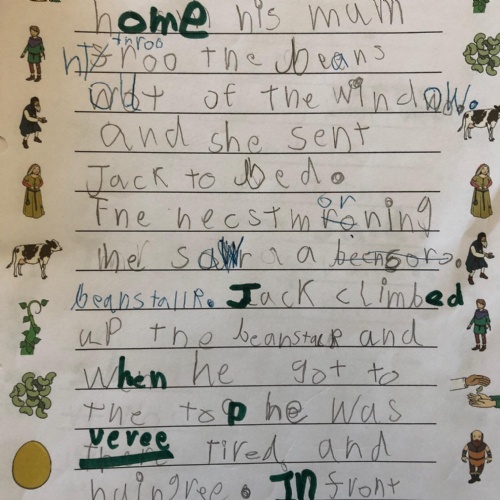 home his mum
throo
throo the beans
out of the window.
and she sent
Jack to bed.
or
The necst moning
he saw a
beanstalk. Jack climbed
up the beanstalk and
when he got to
the top he was
veree
tired and
huingree. In front